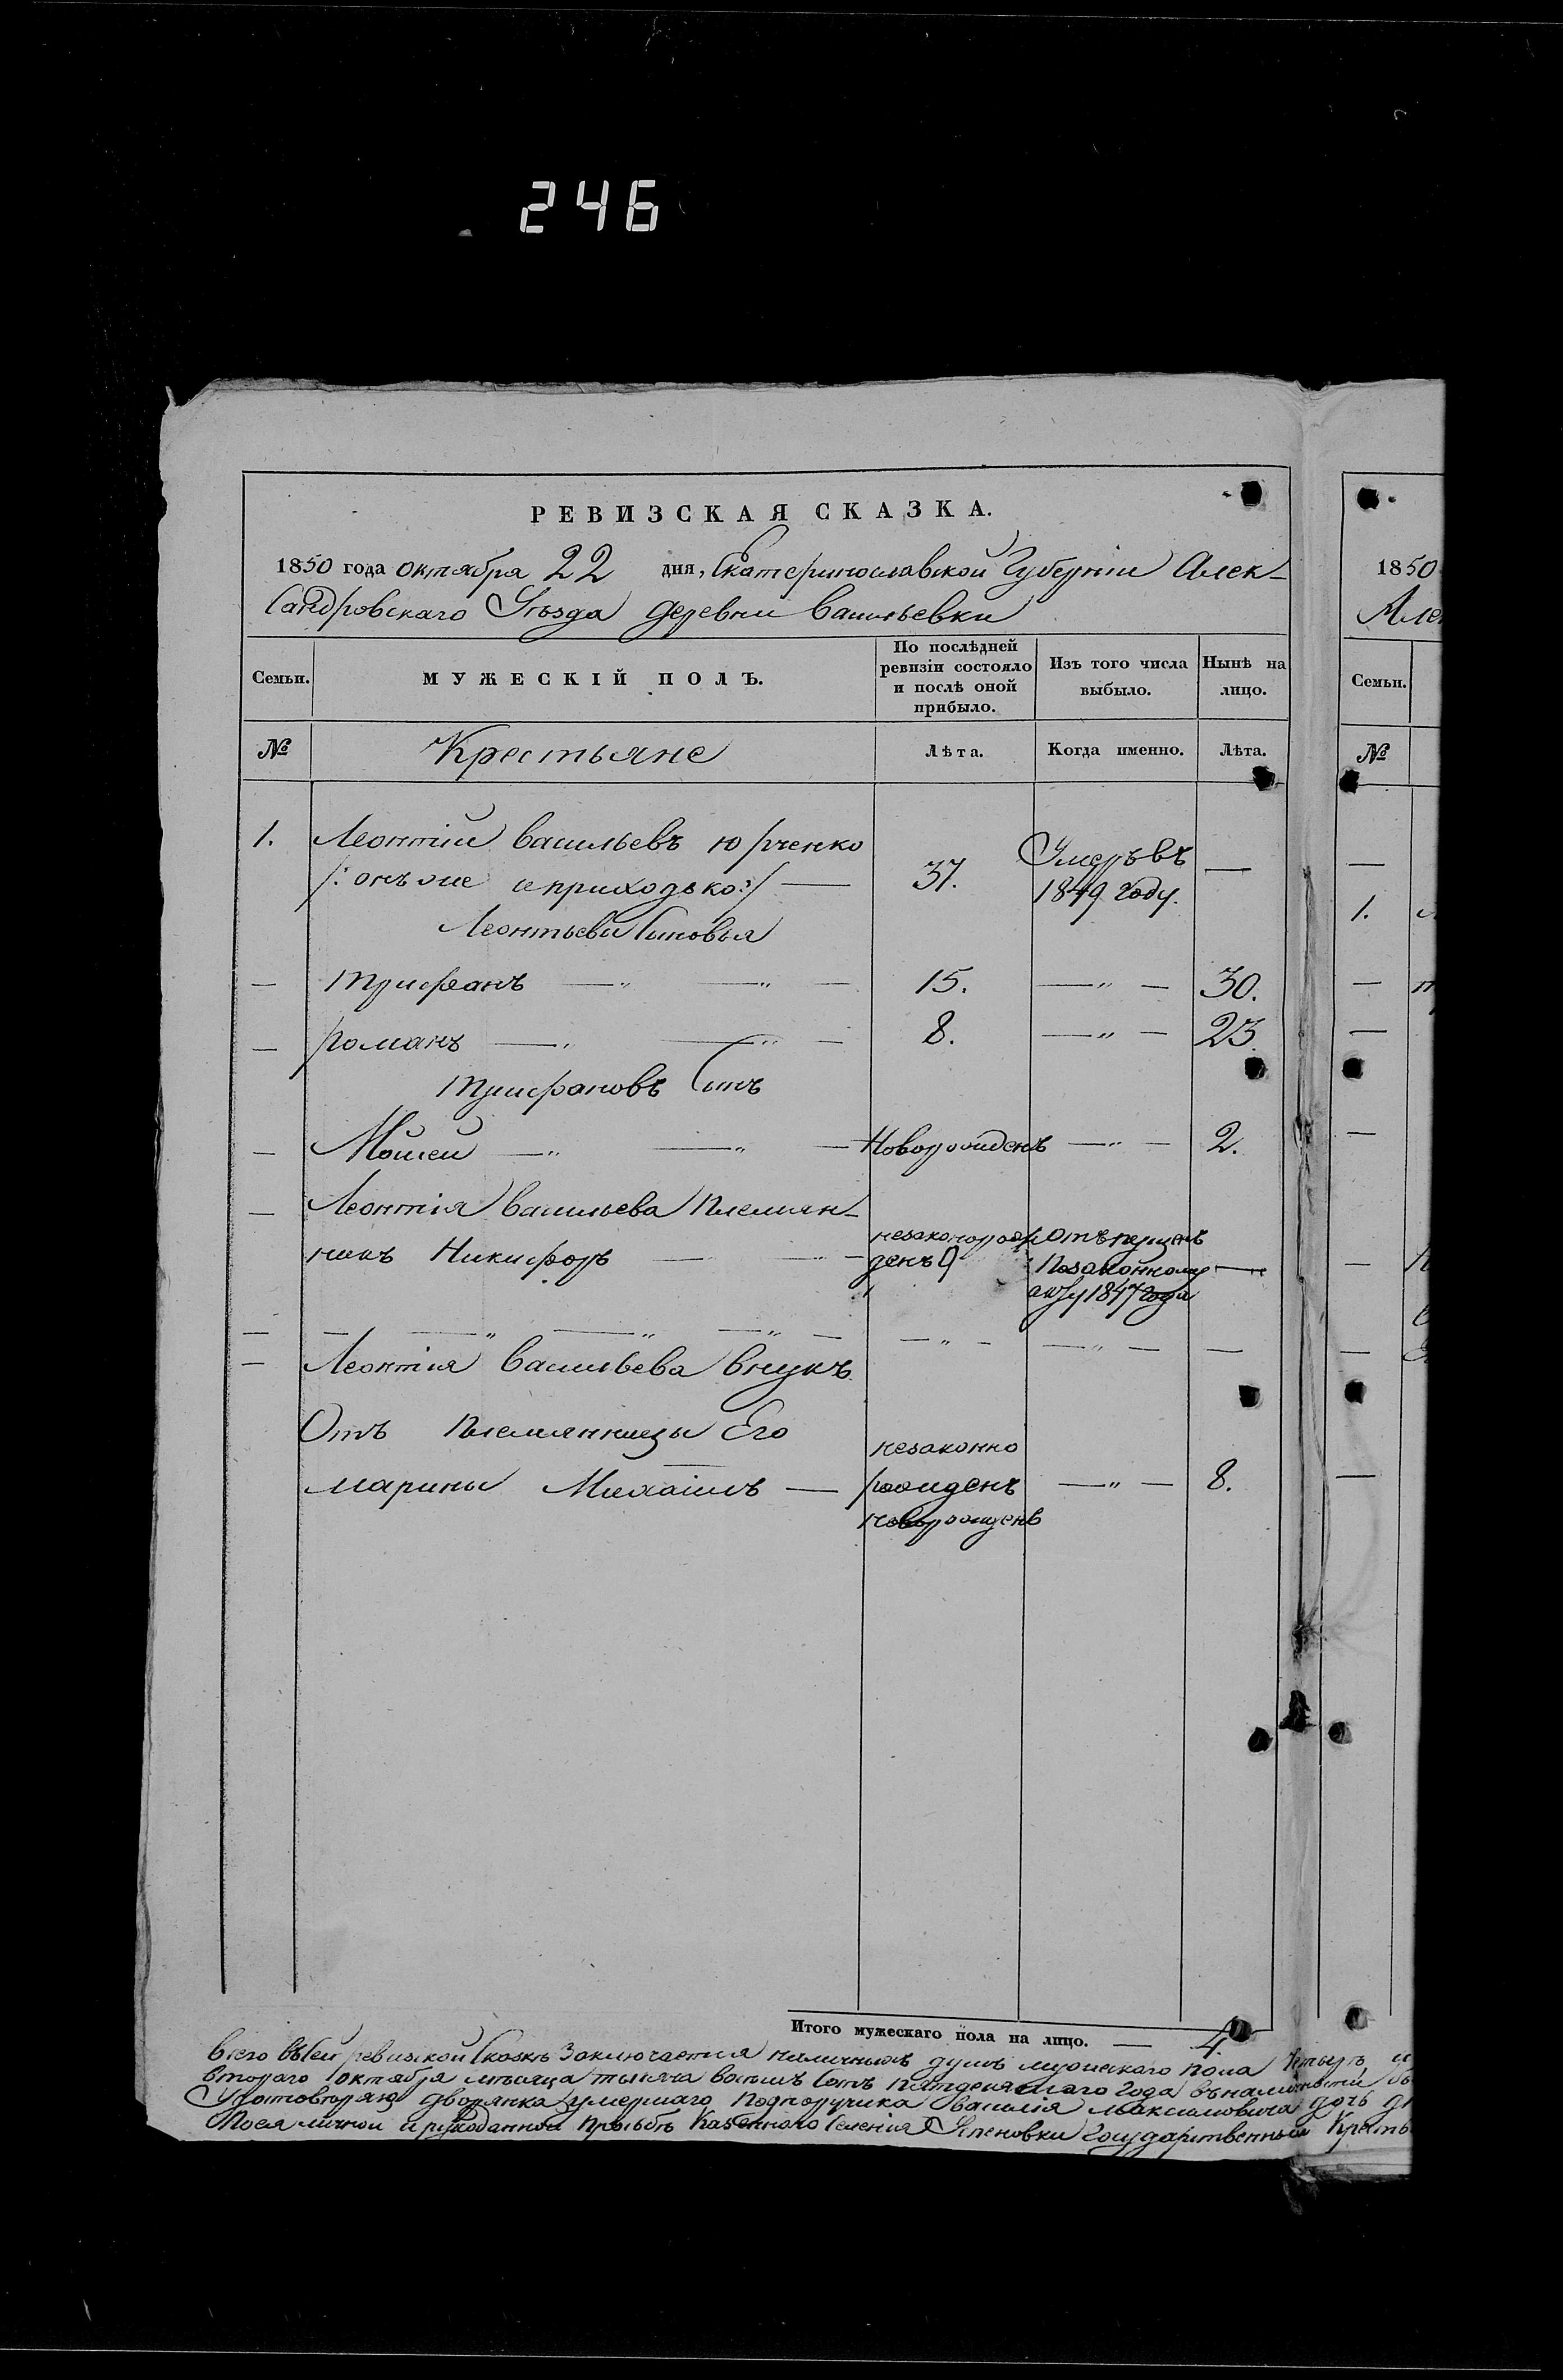 246
РЕВИЗСКАЯ СКАЗКА.
1850 года октября 22 дня, Екатеринославской Губерніи Алек-
сандровскаго Уѣзда деревни Васильевки
Семьи.
МУЖЕСКІЙ ПОЛЪ.
По послѣдней ревизіи состояло и послѣ оной прибыло.
Изъ того числа выбыло.
Нынѣ на лицо.
№ Крестьяне Лѣта. Когда именно. Лѣта.
1. Леонтій Васильевъ Юрченко
/: онъ же и приходько :/ — 37. Умеръ въ 1849 году. —
Леонтьеви Сыновья
— Трифанъ — " — " — 15. — " — 30.
— романъ — " — " — 8. — " — 23.
Трифановъ Сынъ
— Мойсей — " — " — Новорожденъ — " — 2.
— Леонтія Васильева Племян-
никъ Никифоръ — " — незаконорож денъ — По законному 1847 года —
— — — " — " — " — — " — — " — —
— Леонтія Васильева внукъ
Отъ племянницы Его
марины Михаилъ — незаконно рожденъ — " — 8.
новорожденъ
Итого мужескаго пола на лицо. — 4.
Всего въ сей ревизкой Сказкѣ Заключается наличныхъ душъ мужескаго пола четыре
втораго октября мѣсяца тысяча восемь сотъ пятдесятаго года въ наличности
Удостовѣряю дворянка умершаго Подпоручика Василія Максимовича дочь
По ея личной и рукоданной прозьбѣ Казенного Селенія Государственный Кресть
1850
Але
Семьи.
№
1.